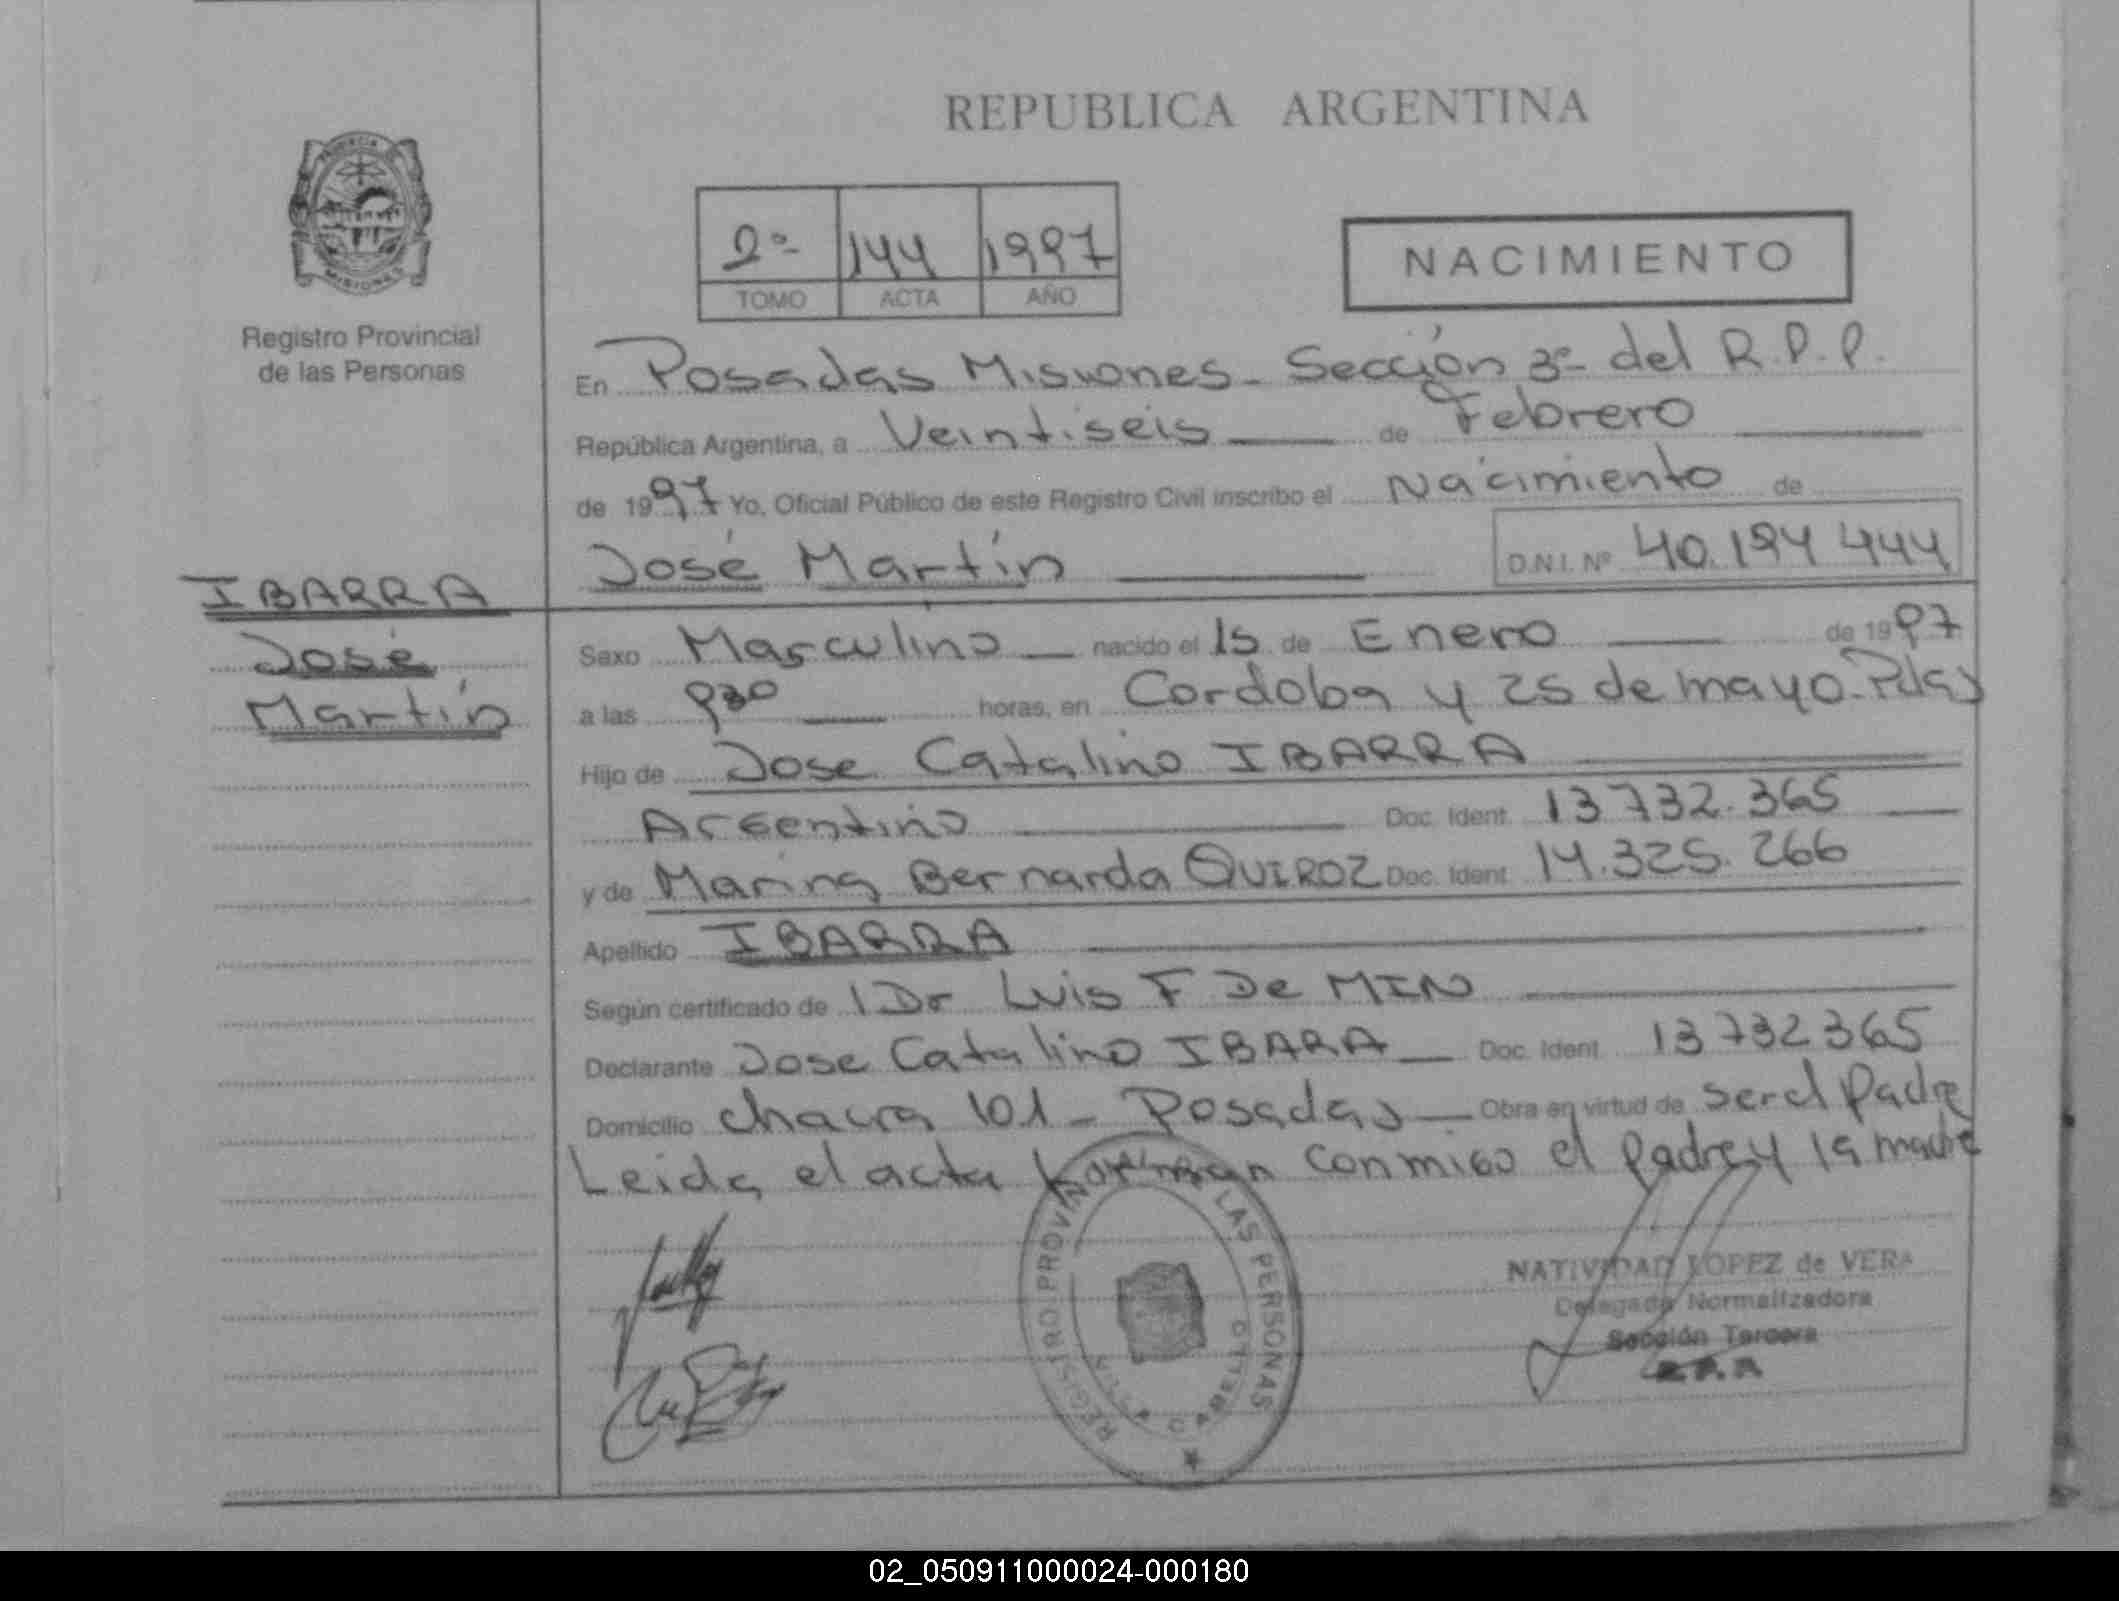 REPUBLICA ARGENTINA
PROVINCIA DE
MISIONES
Registro Provincial
de las Personas
2º 144 1997
TOMO ACTA AÑO
NACIMIENTO
En Posadas Misiones - Sección 3º del R.P.P.
República Argentina, a Veintiseis de Febrero
de 1997 Yo, Oficial Público de este Registro Civil inscribo el Nacimiento de
José Martín D.N.I. Nº 40.194 444
IBARRA
José
Martín
Sexo Masculino nacido el 15 de Enero de 1997
a las 930 horas, en Cordoba y 25 de mayo - Pdas
Hijo de Jose Catalino IBARRA
Argentino Doc. Ident. 13 732.365
y de Marina Bernarda QUIROZ Doc. Ident. 14.325.266
Apellido IBARRA
Según certificado de l Dr Luis F De MIN
Declarante Jose Catalino IBARA Doc. Ident. 13732365
Domicilio chacra 101 - Posadas Obra en virtud de ser el Padre
Leida el acta conmigo el padre y la madre
REGISTRO PROVINCIAL DE LAS PERSONAS
NATIVIDAD LOPEZ de VERA
Delegada Normalizadora
Sección Tercera
02_050911000024-000180